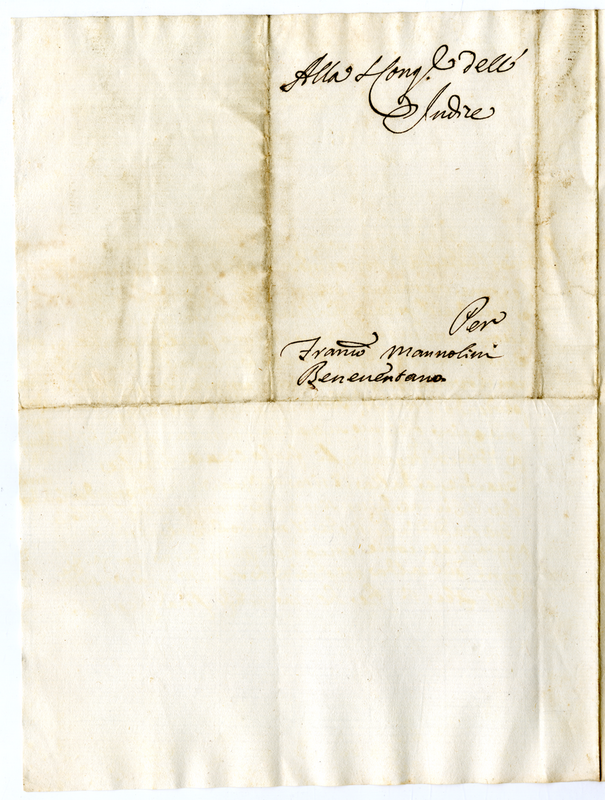 Alla S Cong.e dell'
Indice
Per
Franco Mannolini
Beneventano.